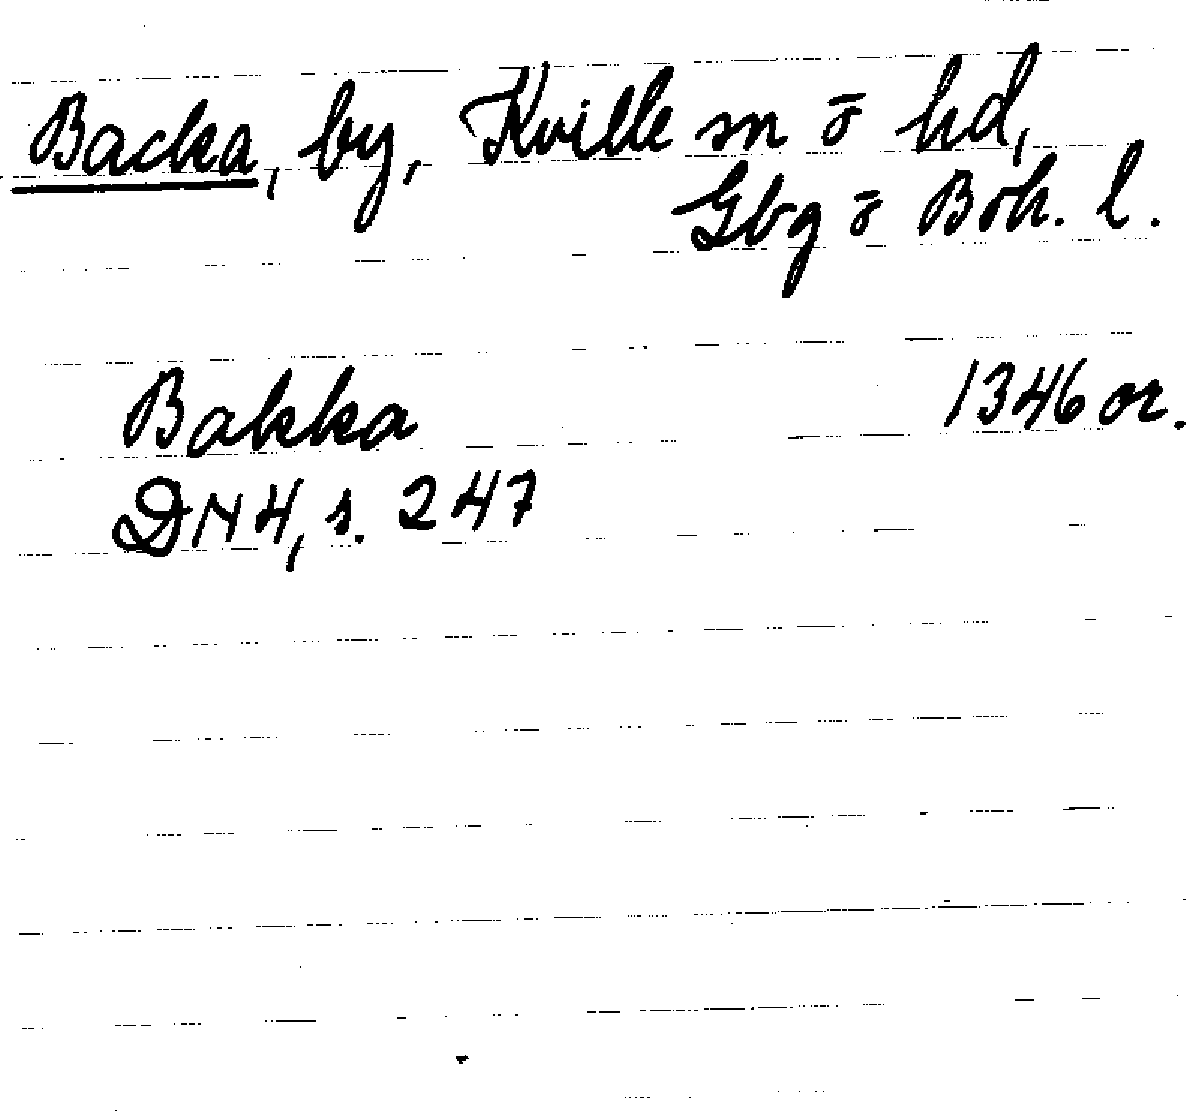 Backa, by, Kville sn o hd,
Gbg o Boh. l.
Bakka 1346 or.
DN 4, s. 247